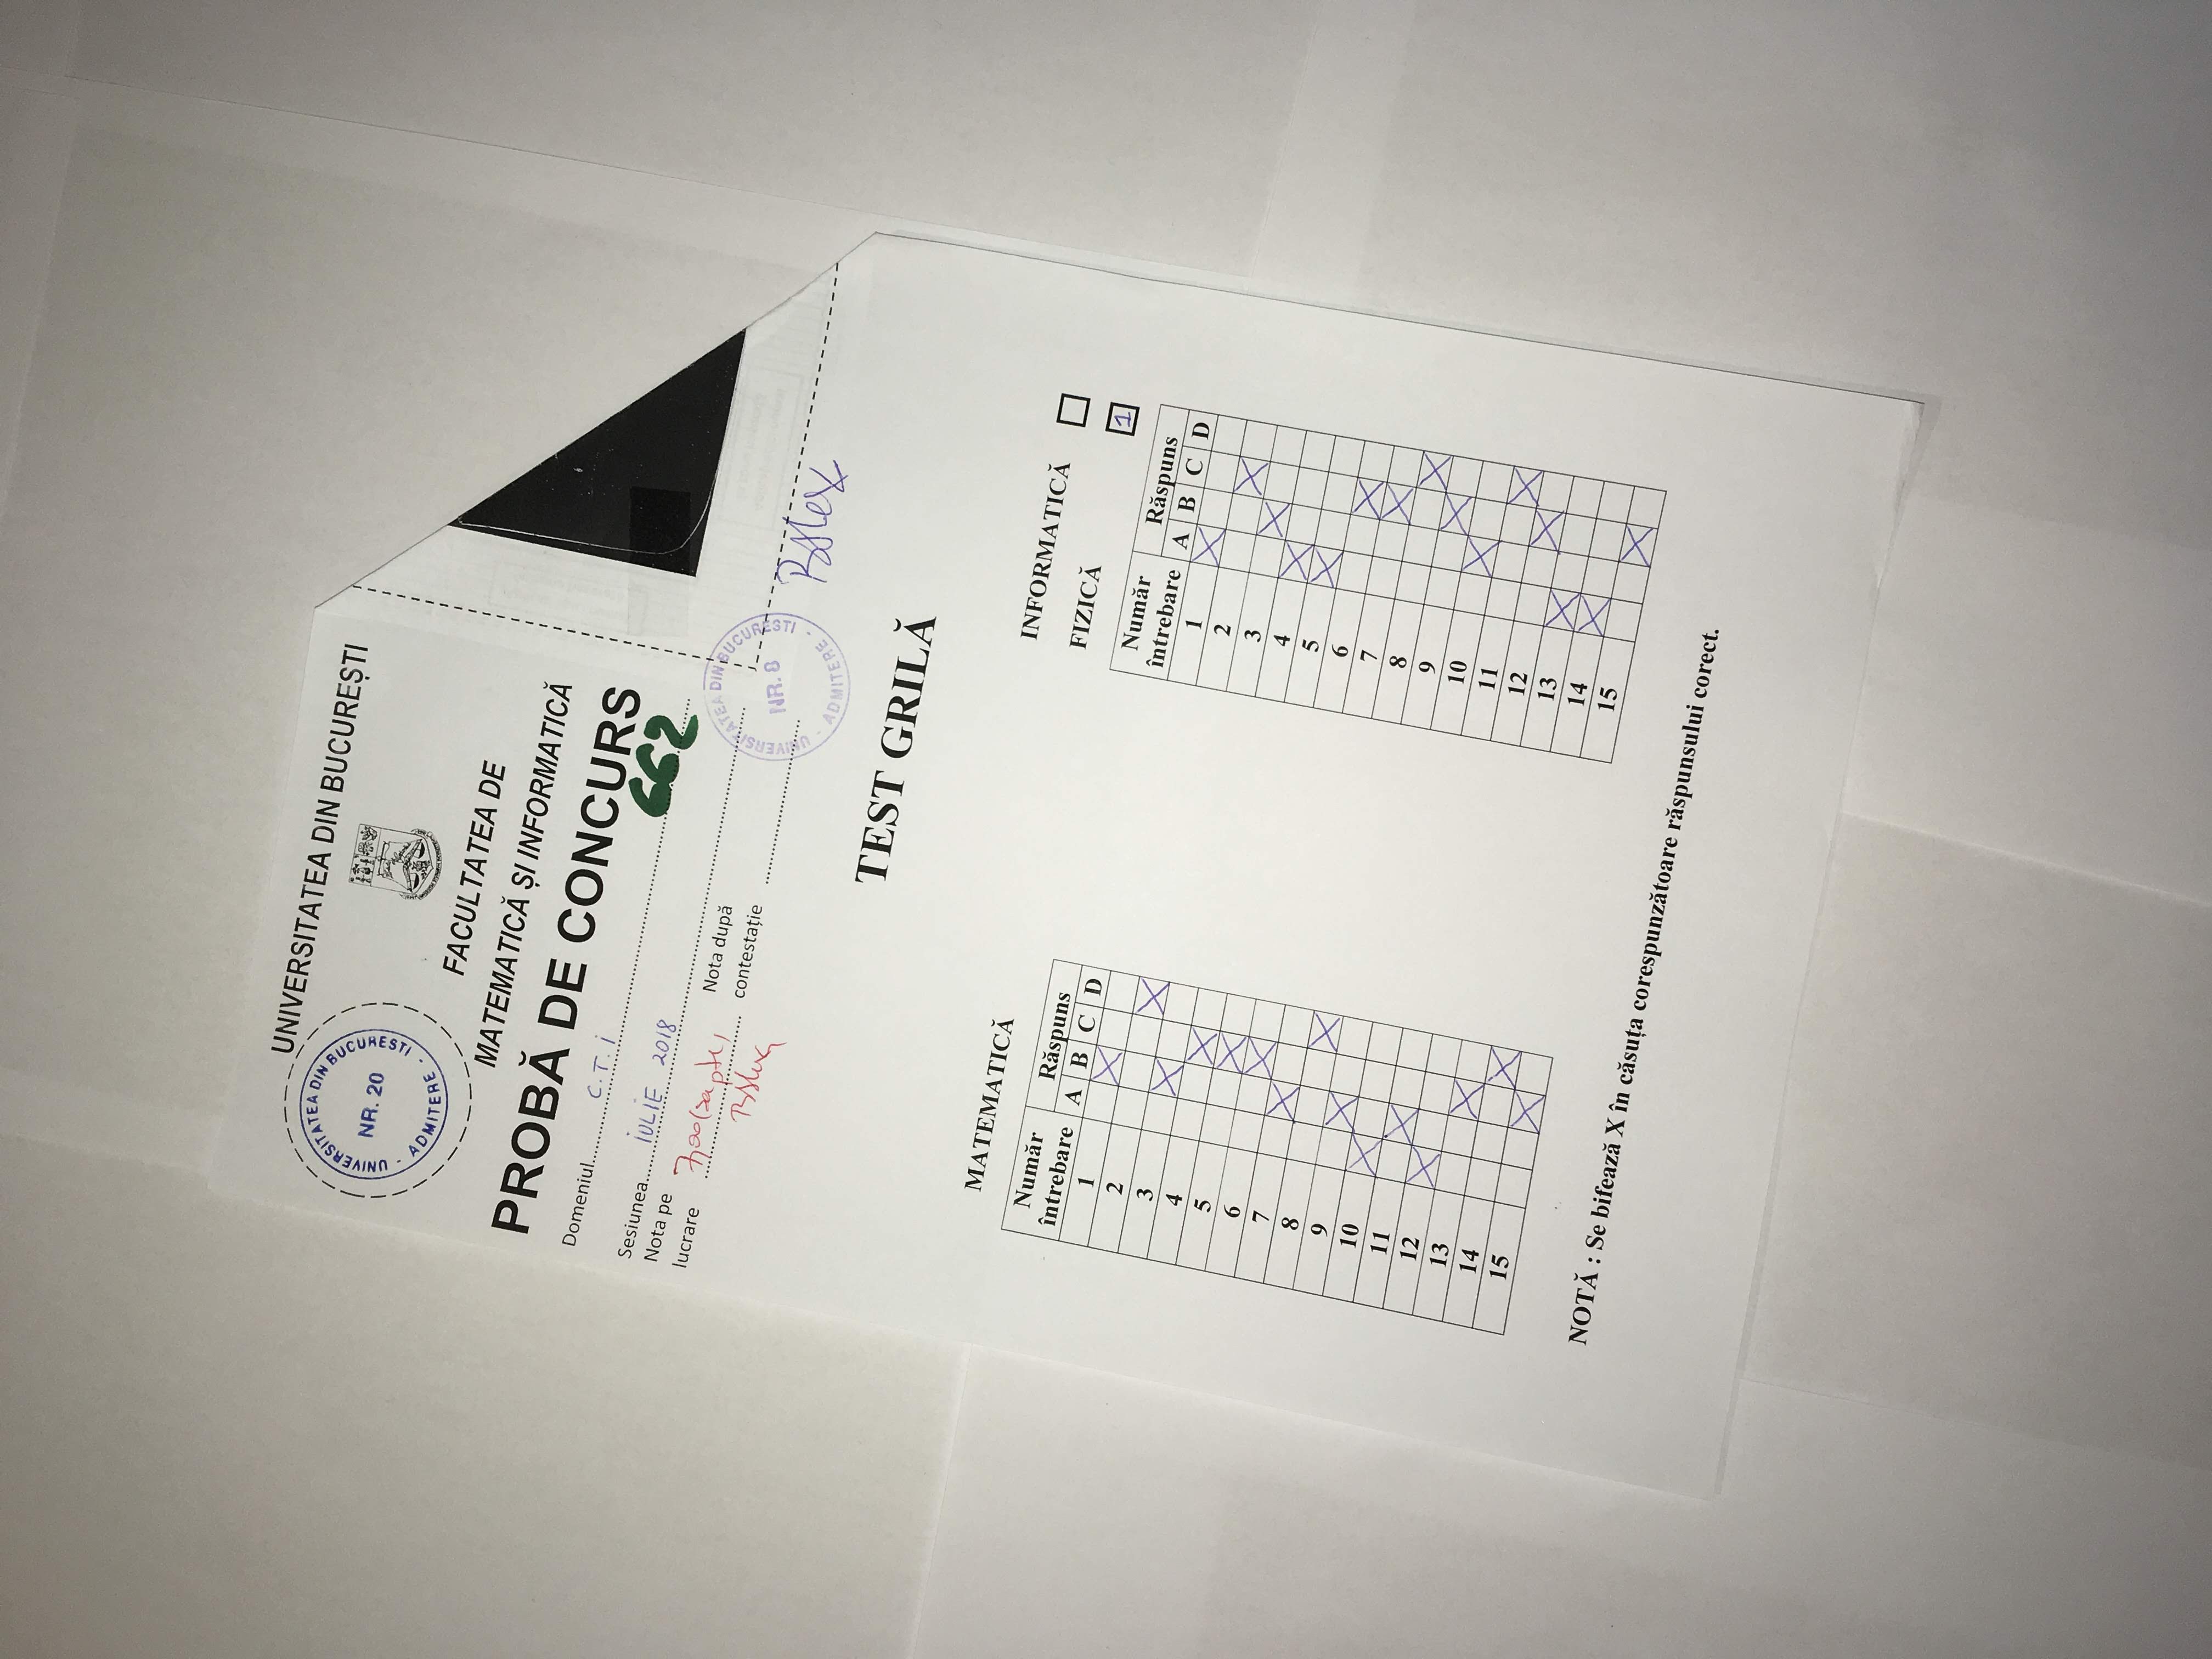 UNIVERSITATEA DIN BUCUREȘTI
UNIVERSITATEA DIN BUCUREȘTI
NR. 20
- ADMITERE -
FACULTATEA DE
MATEMATICĂ ȘI INFORMATICĂ
PROBĂ DE CONCURS
Domeniul C.T.I
662
Sesiunea IULIE 2018
Nota pe lucrare 7,00 (șapte)
Nota după contestație
UNIVERSITATEA DIN BUCUREȘTI
NR. 8
- ADMITERE -
TEST GRILĂ
MATEMATICĂ
Număr întrebare Răspuns
A B C D
1 X
2 X
3 X
4 X
5 X
6 X
7 X
8 X
9 X
10 X
11 X
12 X
13 X
14 X
15 X
INFORMATICĂ
FIZICĂ 1
Număr întrebare Răspuns
A B C D
1 X
2 X
3 X
4 X
5 X
6 X
7 X
8 X
9 X
10 X
11 X
12 X
13 X
14 X
15 X
NOTĂ : Se bifează X în căsuța corespunzătoare răspunsului corect.